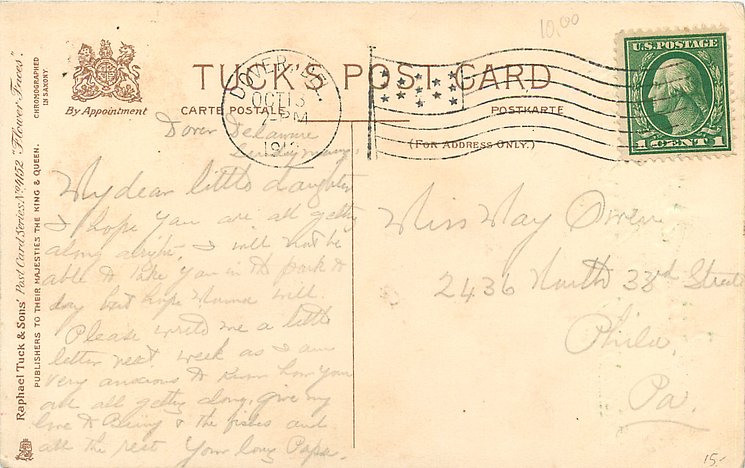 10.00
U.S. POSTAGE
1 CENT 1
TUCK'S POST CARD
By Appointment
CARTE POSTALE
POSTKARTE
(FOR ADDRESS ONLY.)
DOVER, DEL.
OCT 13
PM
191
Raphael Tuck & Sons' Post Card Series No 4152 "Flower Faces".
PUBLISHERS TO THEIR MAJESTIES THE KING & QUEEN.
CHROMOGRAPHED
IN SAXONY
Dover Delaware
Sunday morning
My dear little daughter
I hope you are all getting
along alright. I will not be
able to take you in the park to
day but hope Mama will.
Please write me a little
letter next week as I am
very anxious to know how you
are all getting along, give my
love to and the fishes and
all the rest Your long Papa.
Miss May Owen
2436 North 33rd Street
Phila.
Pa.
15.-